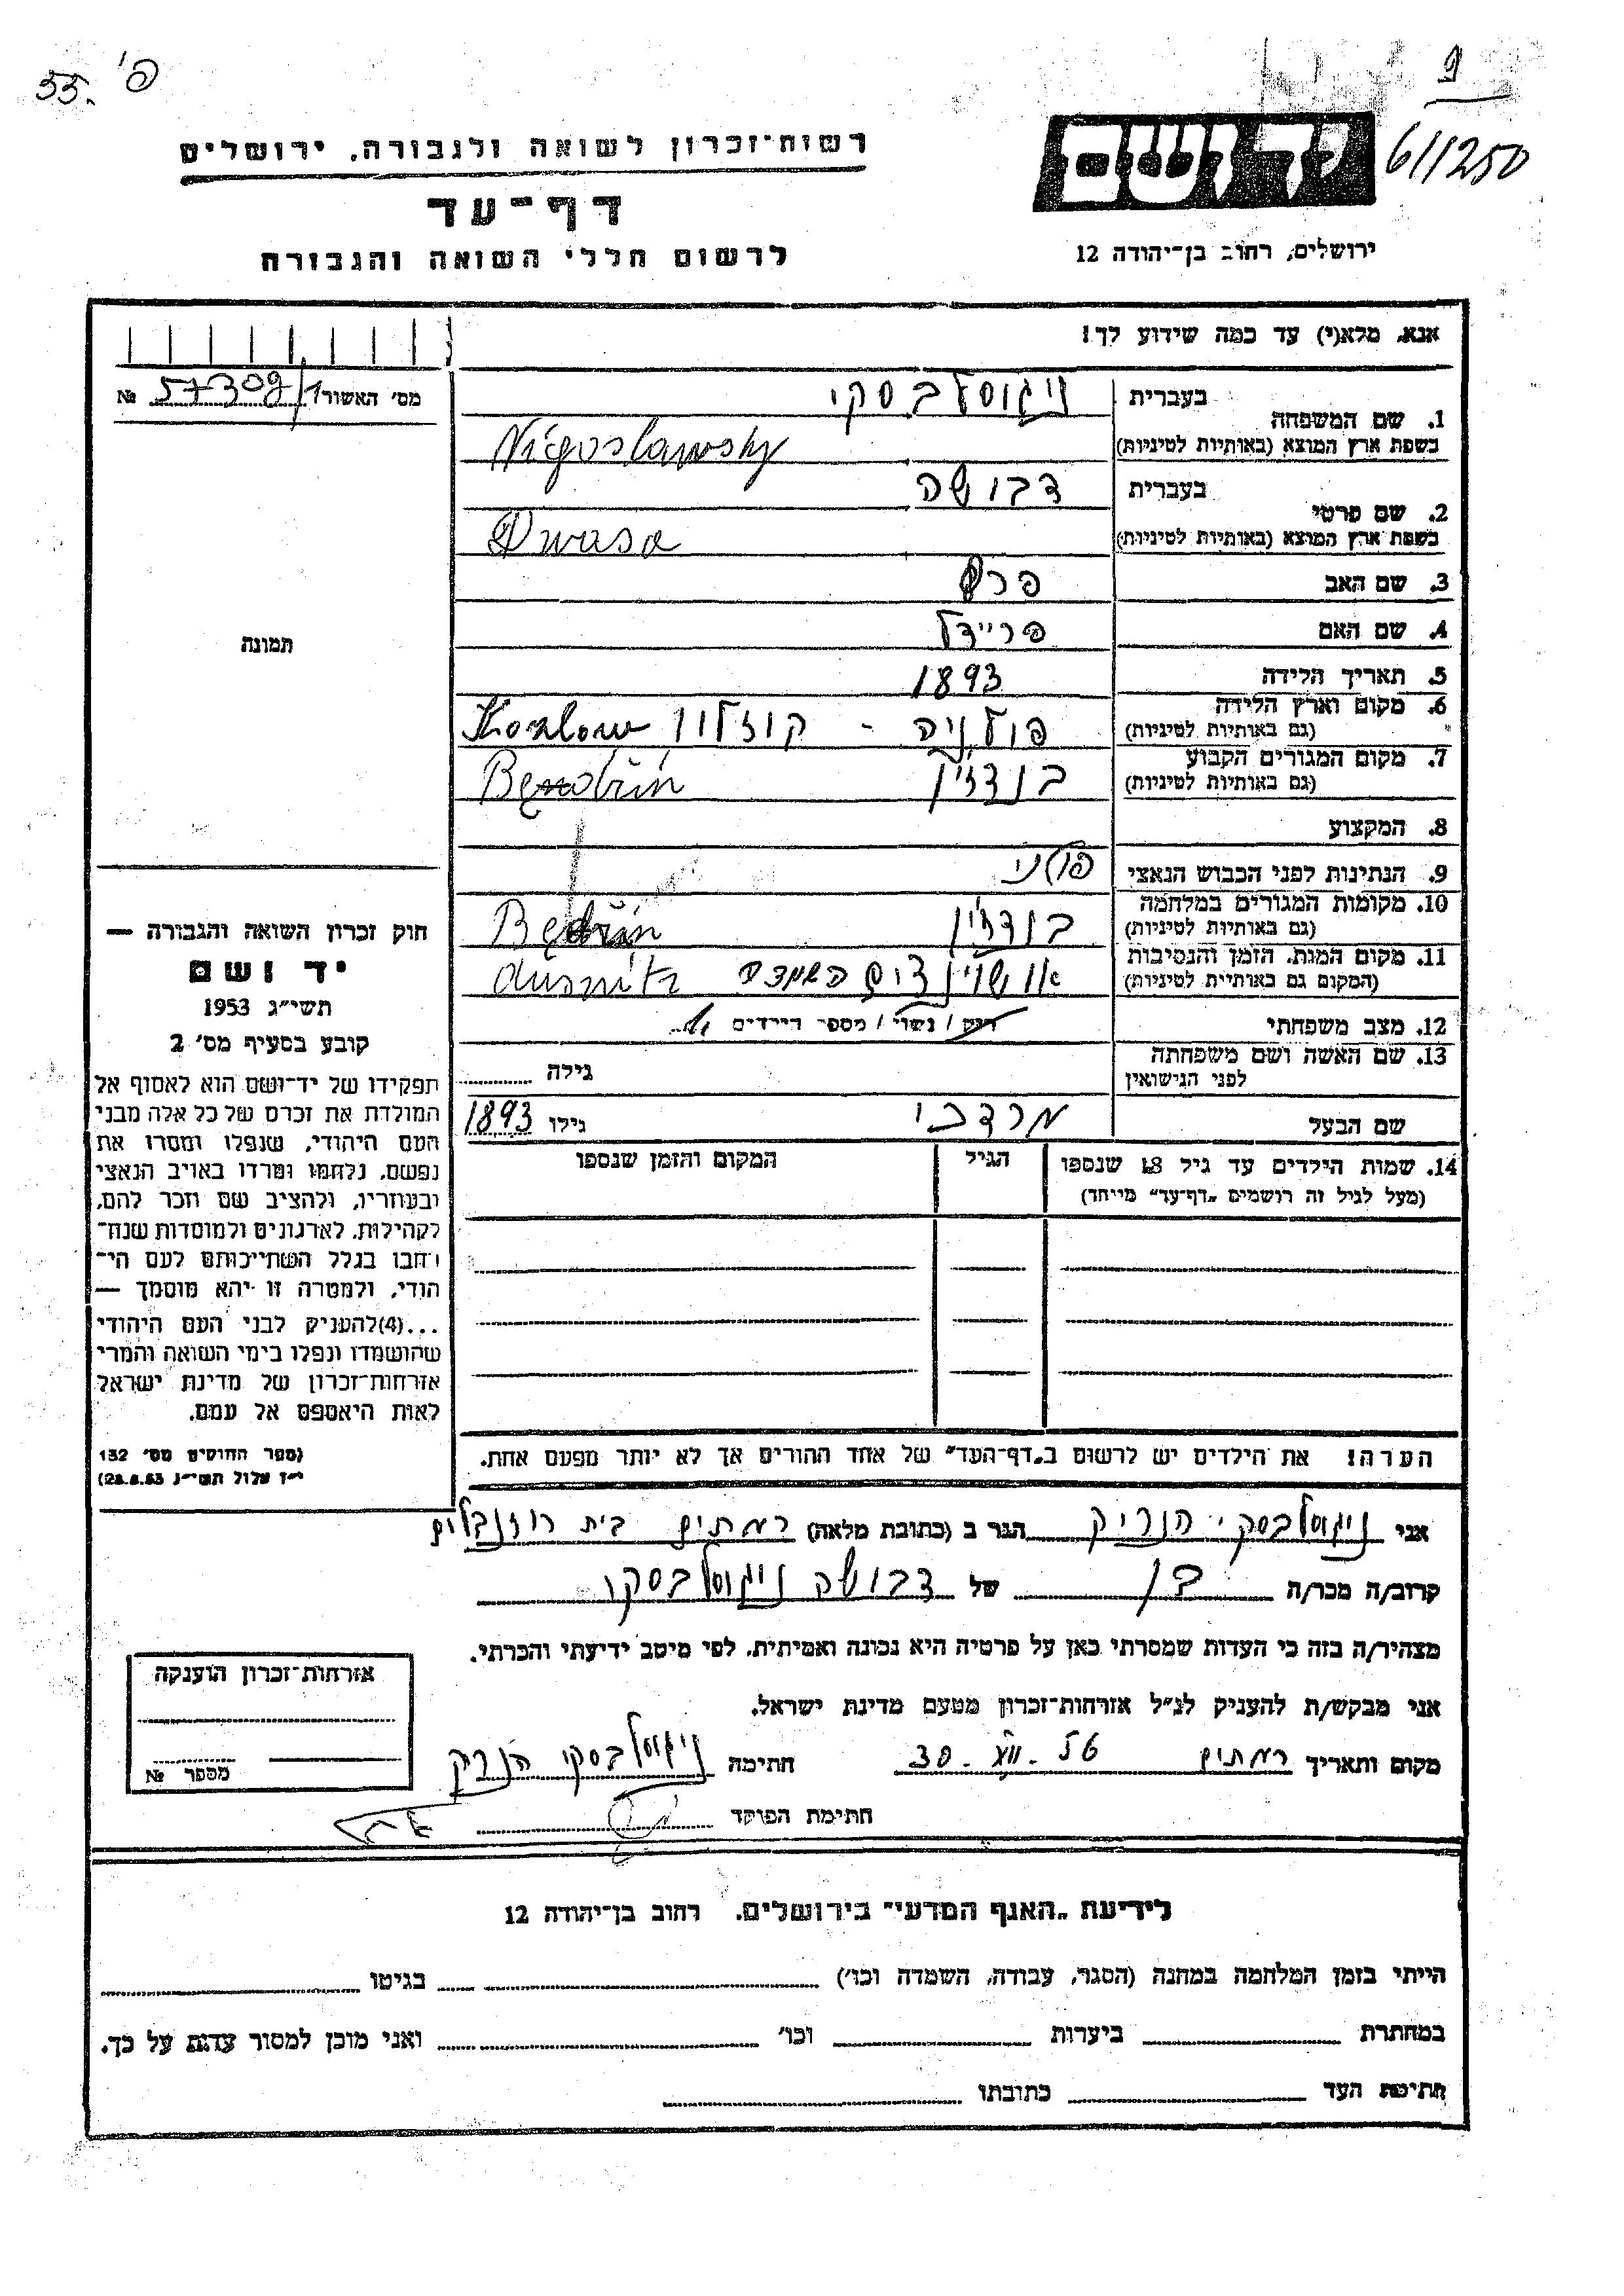 55. פ'
6/1250
יד ושם
רשות־זכרון לשואה ולגבורה, ירושלים
דף־עד
לרשום חללי השואה והגבורה
ירושלים, רחוב בן־יהודה 12
אנא, מלא(י) עד כמה שידוע לך!
מס' האשור 57308/1 №
1. שם המשפחה בעברית ניגוסלבסקי
בשפת ארץ המוצא (באותיות לטיניות) Nigoslawsky
2. שם פרטי בעברית דבושה
בשפת ארץ המוצא (באותיות לטיניות) Dwasa
3. שם האב
4. שם האם פריידל
5. תאריך הלידה 1893
6. מקום וארץ הלידה (גם באותיות לטיניות) פולניה - קוזלוו Kozlow
7. מקום המגורים הקבוע (גם באותיות לטיניות) בנדזין Bendzin
8. המקצוע
9. הנתינות לפני הכבוש הנאצי פולני
10. מקומות המגורים במלחמה (גם באותיות לטיניות) בנדזין
11. מקום המות, הזמן והנסיבות (המקום גם באותיות לטיניות)
12. מצב משפחתי רוק / נשוי / מספר הילדים
13. שם האשה ושם משפחתה לפני הנישואין גילה
שם הבעל מרדכי גילו 1893
14. שמות הילדים עד גיל 18 שנספו הגיל המקום והזמן שנספו
(מעל לגיל זה רושמים „דף־עד" מייחד)
הערה! את הילדים יש לרשום ב„דף־העד" של אחד ההורים אך לא יותר מפעם אחת.
תמונה
חוק זכרון השואה והגבורה —
יד ושם
תשי"ג 1953
קובע בסעיף מס' 2
תפקידו של יד־ושם הוא לאסוף אל
המולדת את זכרם של כל אלה מבני
העם היהודי, שנפלו ומסרו את
נפשם, נלחמו ומרדו באויב הנאצי
ובעוזריו, ולהציב שם וזכר להם,
לקהילות, לארגונים ולמוסדות שנח־
רחבו בגלל השתייכותם לעם הי־
הודי, ולמטרה זו יהא מוסמך —
...(4)להעניק לבני העם היהודי
שהושמדו ונפלו בימי השואה והמרי
אזרחות־זכרון של מדינת ישראל
לאות היאספם אל עמם.
(ספר החוקים מס' 132
י"ז אלול תשי"ג 28.8.53)
אני ניגוסלבסקי הנריק הגר ב (כתובת מלאה) רמתים בית רוזנבלום
קרוב/ה מכר/ה בן של דבושה ניגוסלבסקי
מצהיר/ה בזה כי העדות שמסרתי כאן על פרטיה היא נכונה ואמיתית, לפי מיטב ידיעתי והכרתי.
אני מבקש/ת להעניק לנ"ל אזרחות־זכרון מטעם מדינת ישראל.
מקום ותאריך רמתים 30. VII. 56 חתימה ניגוסלבסקי הנריק
חתימת הפוקד
אזרחות־זכרון הוענקה
מספר №
לידיעת „האגף המדעי" בירושלים, רחוב בן־יהודה 12
הייתי בזמן המלחמה במחנה (הסגר, עבודה, השמדה וכו') בגיטו
במחתרת ביערות וכו' ואני מוכן למסור עדות על כך.
חתימת העד כתובתו